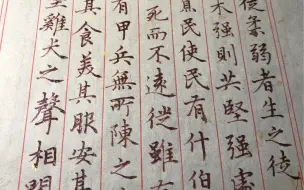 柔弱者生之徒
木强則共堅强處
民使民有什伯
死而不遠徙雖有
有甲兵無所陳之
其食美其服安其
望雞犬之聲相聞